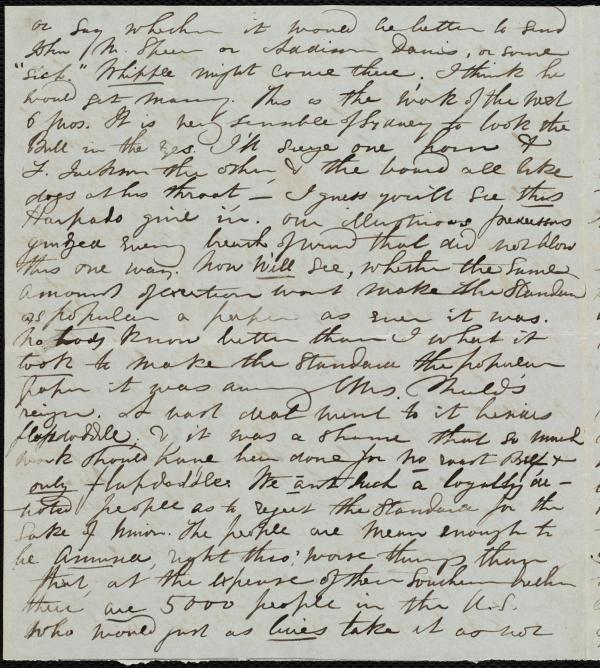 or say whether it would be better to send
John M. Spear or Addison Davis, or some
"sick" Whipple might come there. I think he
would get many. This is the work of the next
6 mos. It is very sensible of Sydney to look the
Bull in the eyes. I'll seize one horn &
F. Jackson the other, & the board all like
dogs at his throat – I guess you'll see this
give in. our illustrious
every breath of wind that did not blow
this one way. Now We'll see, whether the same
amount of exertion wont make the Standard
as popular a paper as ever it was.
No body know better than I what it
took to make the Standard the popular
paper it was during Mrs. Child's
reign. A vast deal went to it besides
flapdoodle, & it was a shame that so much
work should have been done for no
only flapdoodle. We ant such a loyally de-
voted people as to reject the Standard for the
Sake of Union. The people are mean enough to
be amused, right thro' worse things than
that, at the expense of their Southern brethren
there are 5000 people in the U.S.
who would just as lives take it as not